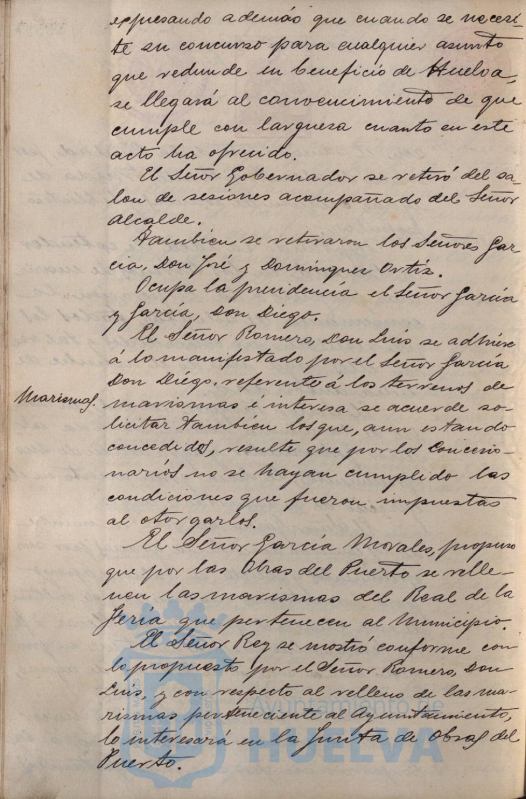 expresando además que cuando se necesi-
te su concurso para cualquier asunto
que redunde en beneficio de Huelva,
se llegará al convencimiento de que
cumple con largueza cuanto en este
acto ha ofrecido.
El Señor Gobernador se retiró del sa-
lon de sesiones acompañado del Señor
Alcalde.
Tambien se retiraron los Señores Gar-
cia, Don José y Dominguez Ortiz.
Ocupa la presidencia el Señor García
y García, Don Diego.
El Señor Romero, Don Luis se adhiere
á lo manifestado por el Señor García
Don Diégo, referente á los terrenos de
Marismas.
marismas é interesa se acuerde so-
licitar tambien los que, aun estando
concedidos, resulte que por los Concesio-
narios no se hayan cumplido las
condiciones que fueron impuestas
al otorgarlos.
El Señor García Morales, propuso
que por las Obras del Puerto se relle-
nen las marismas del Real de la
Feria que pertenecen al Municipio.
El Señor Rey se mostró conforme con
lo propuesto por el Señor Romero, Don
Luis, y con respecto al relleno de las ma-
rismas perteneciente al Ayuntamiento,
lo interesará en la Junta de Obras del
Puerto.
Ayuntamiento de
HUELVA